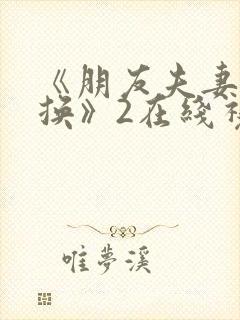 《朋友夫妻
换》2在线
唯梦溪